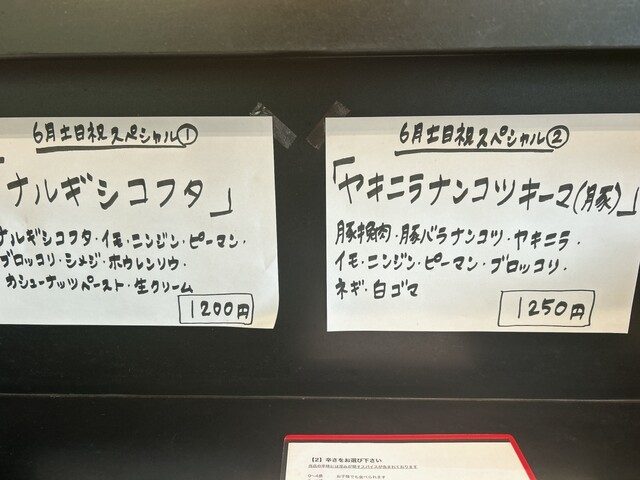 6月土日祝スペシャル①
「ナルギシコフタ」
ナルギシコフタ・イモ・ニンジン・ピーマン・
ブロッコリ・シメジ・ホウレンソウ
カシューナッツペースト・生クリーム
1200円
6月土日祝スペシャル②
「ヤキニラナンコツキーマ(豚)」
豚挽肉・豚バラナンコツ・ヤキニラ・
イモ・ニンジン・ピーマン・ブロッコリ・
ネギ・白ゴマ
1250円
【2】辛さをお選び下さい